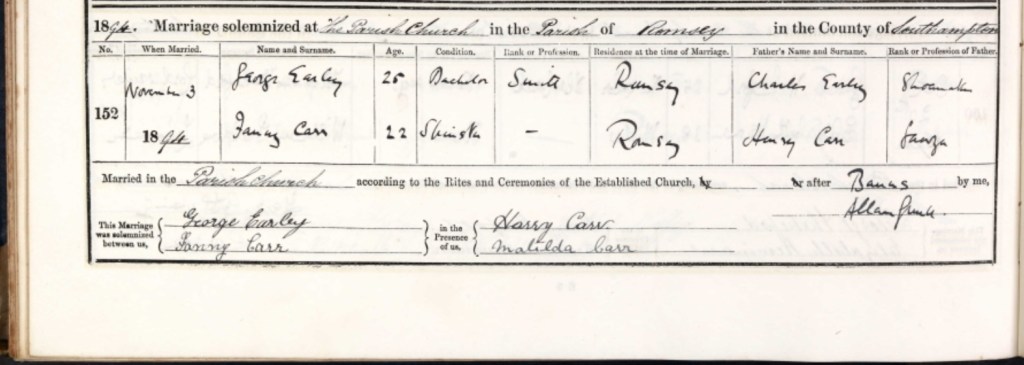 1894. Marriage solemnized at The Parish Church in the Parish of Romsey in the County of Southampton
No. When Married. Name and Surname. Age. Condition. Rank or Profession. Residence at the time of Marriage. Father's Name and Surname. Rank or Profession of Father.
152 November 3 1894 George Earley 25 Bachelor Smith Romsey Charles Earley Shoemaker
Fanny Carr 22 Spinster – Romsey Henry Carr
Married in the Parish Church according to the Rites and Ceremonies of the Established Church, by or after Banns by me,
Allan
This Marriage was solemnized between us, George Earley in the Presence of us, Harry Carr
Fanny Carr Matilda Carr